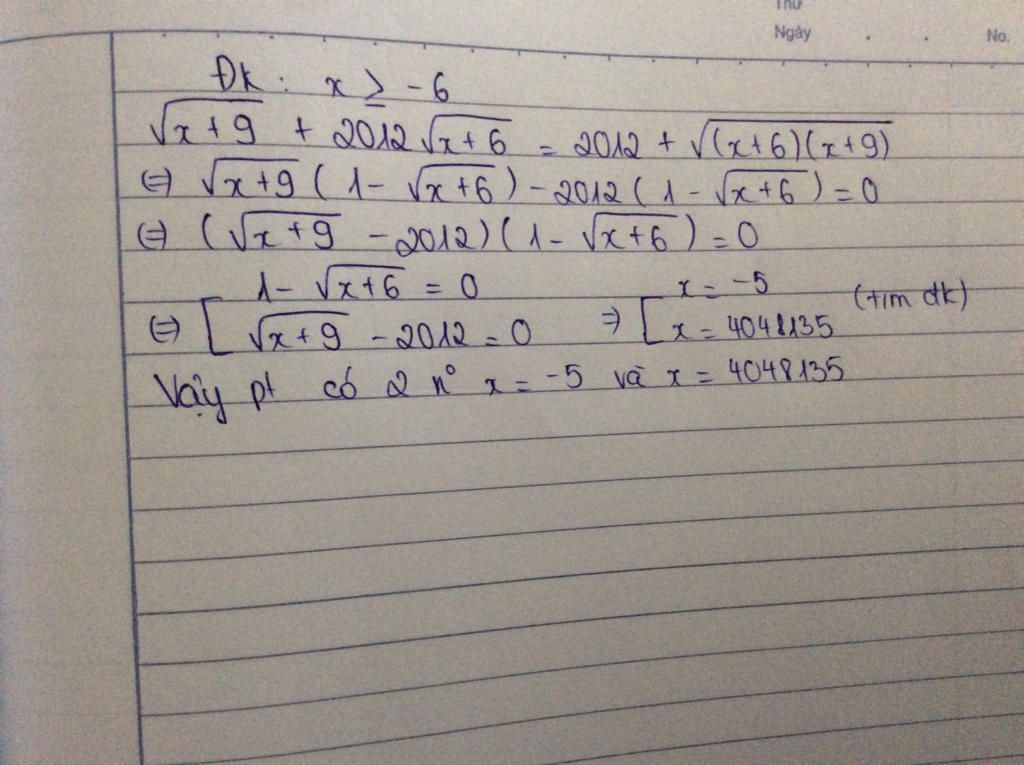 Thứ
Ngày . . No.
Đk : x ≥ -6
√(x+9) + 2012√(x+6) = 2012 + √((x+6)(x+9))
(=) √(x+9) ( 1 - √(x+6) ) - 2012 ( 1 - √(x+6) ) = 0
(=) (√(x+9) - 2012) ( 1 - √(x+6) ) = 0
(=) [ 1 - √(x+6) = 0 => [ x = -5 (t/m đk)
√(x+9) - 2012 = 0 x = 4048135
Vậy pt có 2 n° x = -5 và x = 4048135